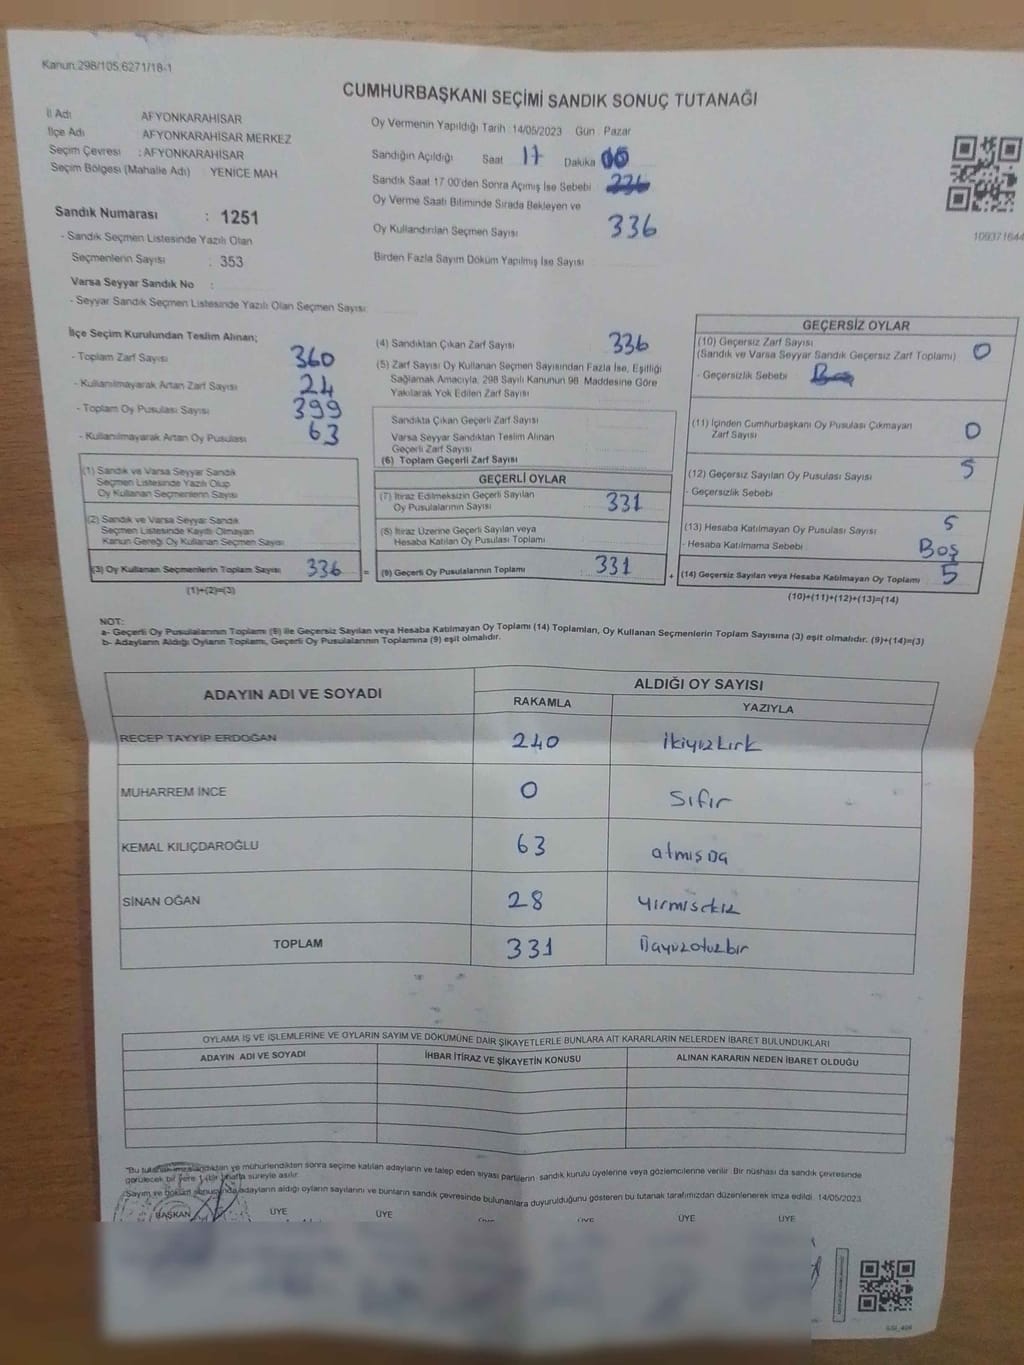 Kanun.298/105,6271/18-1
CUMHURBAŞKANI SEÇİMİ SANDIK SONUÇ TUTANAĞI
İl Adı AFYONKARAHİSAR
İlçe Adı AFYONKARAHİSAR MERKEZ
Seçim Çevresi : AFYONKARAHİSAR
Seçim Bölgesi (Mahalle Adı) YENİCE MAH
Oy Vermenin Yapıldığı Tarih : 14/05/2023 Gün : Pazar
Sandığın Açıldığı Saat 17 Dakika
Sandık Saat 17:00'den Sonra Açımış İse Sebebi
Oy Verme Saati Bitiminde Sırada Bekleyen ve
Oy Kullandırılan Seçmen Sayısı 336
Birden Fazla Sayım Döküm Yapılmış İse Sayısı
109371644
Sandık Numarası : 1251
- Sandık Seçmen Listesinde Yazılı Olan
Seçmenlerin Sayısı : 353
Varsa Seyyar Sandık No :
- Seyyar Sandık Seçmen Listesinde Yazılı Olan Seçmen Sayısı
İlçe Seçim Kurulundan Teslim Alınan;
- Toplam Zarf Sayısı 360
- Kullanılmayarak Artan Zarf Sayısı 24
- Toplam Oy Pusulası Sayısı 399
- Kullanılmayarak Artan Oy Pusulası 63
(1) Sandık ve Varsa Seyyar Sandık
Seçmen Listesinde Yazılı Olup
Oy Kullanan Seçmenlerin Sayısı
(2) Sandık ve Varsa Seyyar Sandık
Seçmen Listesinde Kayıtlı Olmayan
Kanun Gereği Oy Kullanan Seçmen Sayısı
(3) Oy Kullanan Seçmenlerin Toplam Sayısı 336 =
(1)+(2)=(3)
(4) Sandıktan Çıkan Zarf Sayısı 336
(5) Zarf Sayısı Oy Kullanan Seçmen Sayısından Fazla İse, Eşitliği
Sağlamak Amacıyla, 298 Sayılı Kanunun 98. Maddesine Göre
Yakılarak Yok Edilen Zarf Sayısı
Sandıkta Çıkan Geçerli Zarf Sayısı
Varsa Seyyar Sandıktan Teslim Alınan
Geçerli Zarf Sayısı
(6) Toplam Geçerli Zarf Sayısı
GEÇERLİ OYLAR
(7) İtiraz Edilmeksizin Geçerli Sayılan
Oy Pusulalarının Sayısı 331
(8) İtiraz Üzerine Geçerli Sayılan veya
Hesaba Katılan Oy Pusulası Toplamı
(9) Geçerli Oy Pusulalarının Toplamı 331 +
GEÇERSİZ OYLAR
(10) Geçersiz Zarf Sayısı
(Sandık ve Varsa Seyyar Sandık Geçersiz Zarf Toplamı) 0
- Geçersizlik Sebebi
(11) İçinden Cumhurbaşkanı Oy Pusulası Çıkmayan
Zarf Sayısı 0
(12) Geçersiz Sayılan Oy Pusulası Sayısı 5
- Geçersizlik Sebebi
(13) Hesaba Katılmayan Oy Pusulası Sayısı 5
- Hesaba Katılmama Sebebi Boş
(14) Geçersiz Sayılan veya Hesaba Katılmayan Oy Toplamı 5
(10)+(11)+(12)+(13)=(14)
NOT:
a- Geçerli Oy Pusulalarının Toplamı (9) ile Geçersiz Sayılan veya Hesaba Katılmayan Oy Toplamı (14) Toplamları, Oy Kullanan Seçmenlerin Toplam Sayısına (3) eşit olmalıdır. (9)+(14)=(3)
b- Adayların Aldığı Oyların Toplamı, Geçerli Oy Pusulalarının Toplamına (9) eşit olmalıdır.
ADAYIN ADI VE SOYADI ALDIĞI OY SAYISI
RAKAMLA YAZIYLA
RECEP TAYYİP ERDOĞAN 240 ikiyüzkırk
MUHARREM İNCE 0 sıfır
KEMAL KILIÇDAROĞLU 63 atmışüç
SİNAN OĞAN 28 yirmisekiz
TOPLAM 331 üçyüzotuzbir
OYLAMA İŞ VE İŞLEMLERİNE VE OYLARIN SAYIM VE DÖKÜMÜNE DAİR ŞİKAYETLERLE BUNLARA AİT KARARLARIN NELERDEN İBARET BULUNDUKLARI
ADAYIN ADI VE SOYADI İHBAR İTİRAZ VE ŞİKAYETİN KONUSU ALINAN KARARIN NEDEN İBARET OLDUĞU
"Bu tutanak imzalandıktan ve mühürlendikten sonra seçime katılan adayların ve talep eden siyasi partilerin sandık kurulu üyelerine veya gözlemcilerine verilir. Bir nüshası da sandık çevresinde
görülecek bir yere 1 (bir) hafta süreyle asılır.
Sayım ve döküm sonucunda adayların aldığı oyların sayılarını ve bunların sandık çevresinde bulunanlara duyurulduğunu gösteren bu tutanak tarafımızdan düzenlenerek imza edildi. 14/05/2023
BAŞKAN ÜYE ÜYE ÜYE ÜYE ÜYE ÜYE